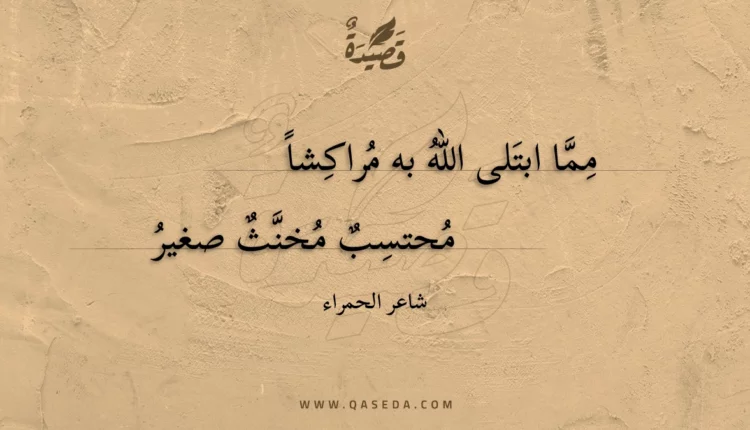 قَصِيْدَةٌ
مِمَّا ابتَلى اللهُ به مُراكِشاً
مُحتسِبٌ مُخنَّثٌ صغيرُ
شاعر الحمراء
WWW.QASEDA.COM